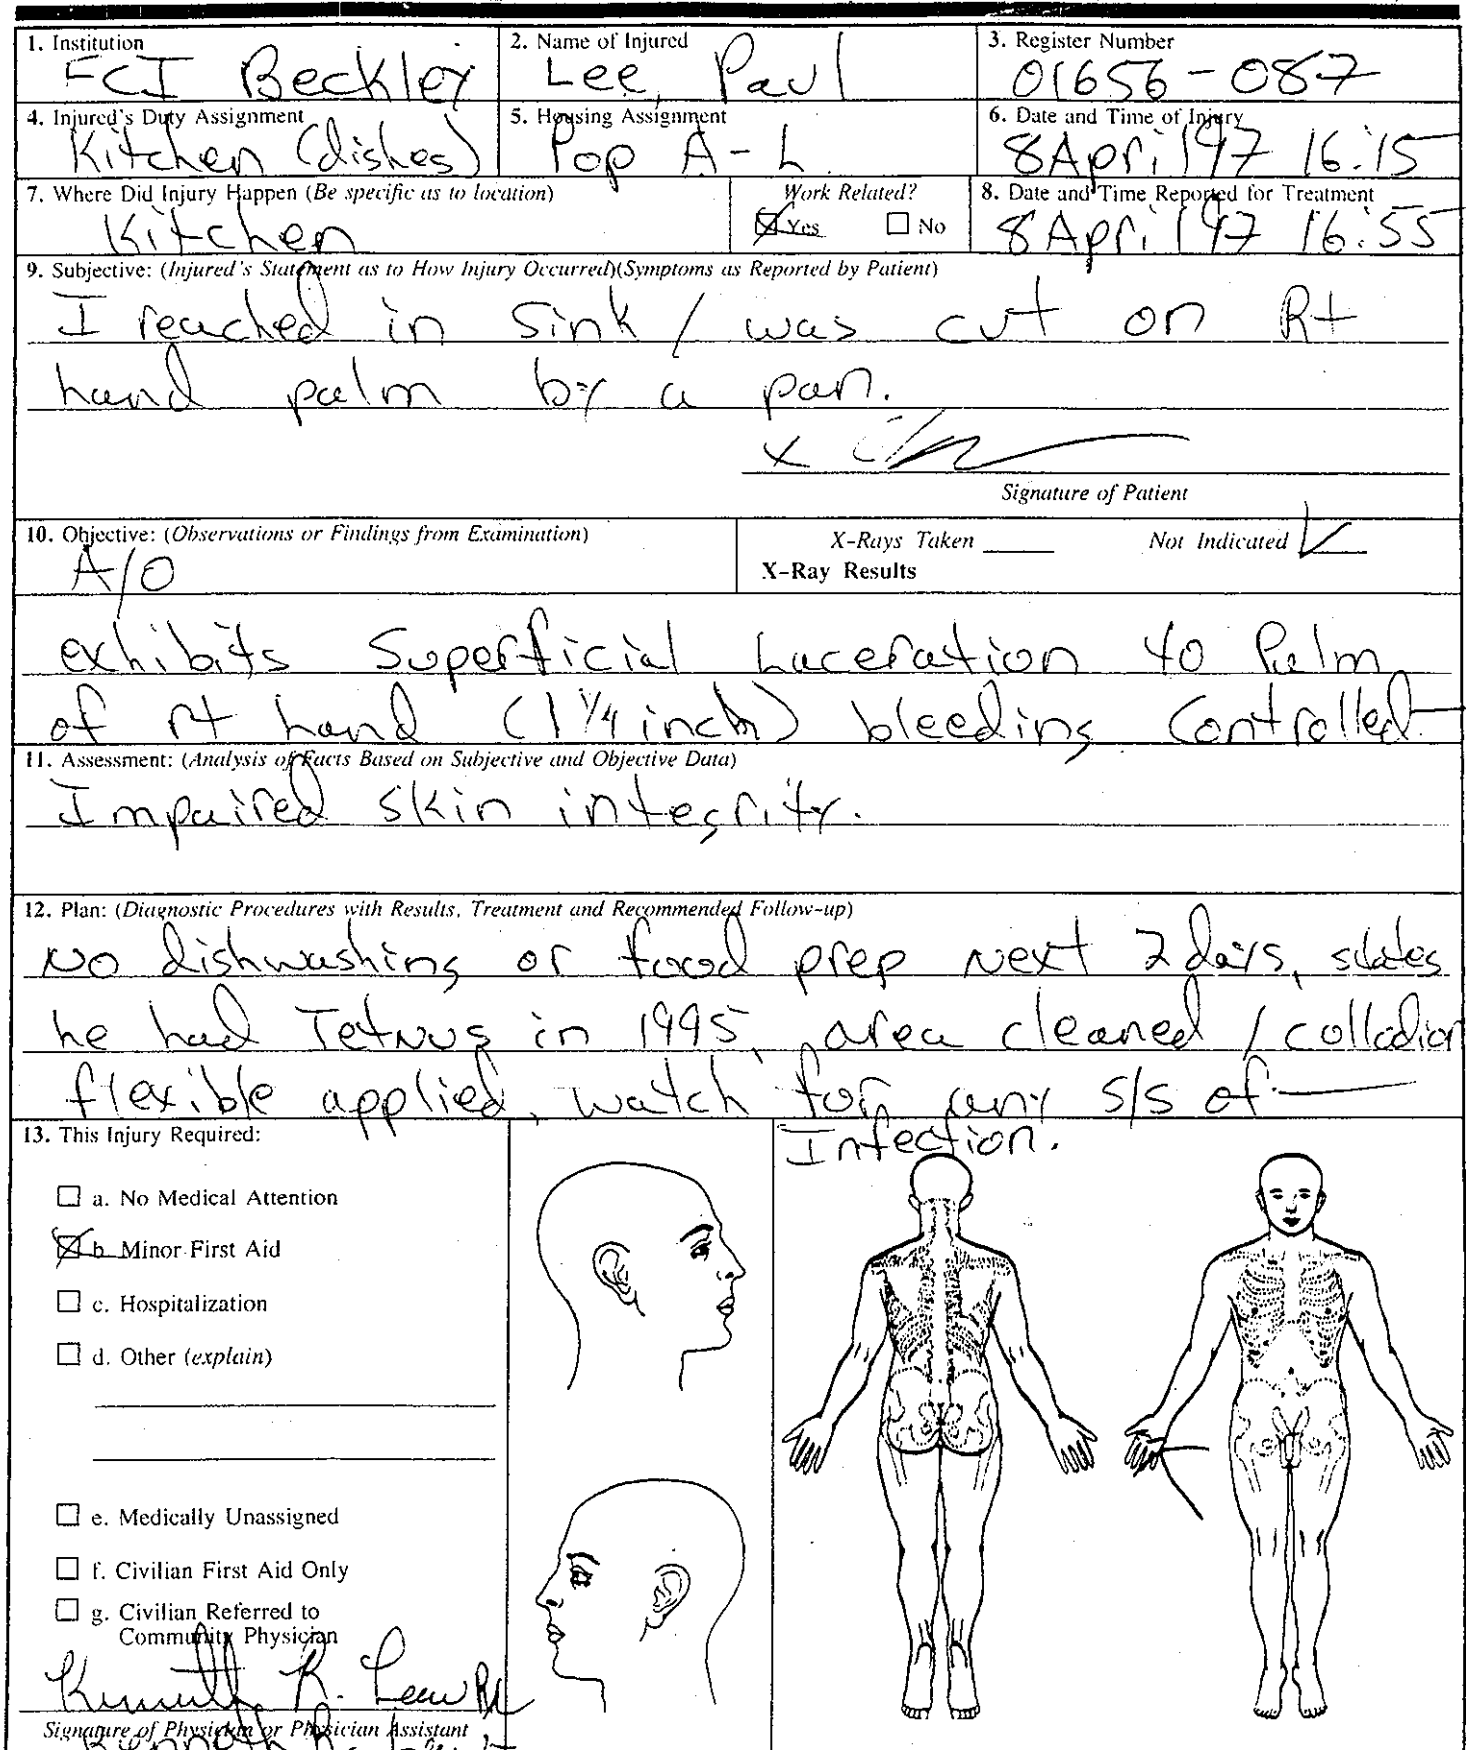 1. Institution
FCI Beckley
2. Name of Injured
Lee, Paul
3. Register Number
01656-087
4. Injured's Duty Assignment
Kitchen (dishes)
5. Housing Assignment
Pop A-L
6. Date and Time of Injury
8 April 97 16:15
7. Where Did Injury Happen (Be specific as to location)
Kitchen
Work Related?
Yes No
8. Date and Time Reported for Treatment
8 April 97 16:55
9. Subjective: (Injured's Statement as to How Injury Occurred)(Symptoms as Reported by Patient)
I reached in sink / was cut on Rt
hand palm by a pan.
X
Signature of Patient
10. Objective: (Observations or Findings from Examination)
A/O
X-Rays Taken Not Indicated
X-Ray Results
exhibits Superficial Laceration to Palm
of rt hand (1 1/4 inch) bleeding Controlled
11. Assessment: (Analysis of Facts Based on Subjective and Objective Data)
Impaired skin integrity.
12. Plan: (Diagnostic Procedures with Results, Treatment and Recommended Follow-up)
No dishwashing or food prep next 2 days, states
he had Tetnus in 1995, area cleaned / collodion
flexible applied, watch for any s/s of
Infection.
13. This Injury Required:
a. No Medical Attention
b. Minor First Aid
c. Hospitalization
d. Other (explain)
e. Medically Unassigned
f. Civilian First Aid Only
g. Civilian Referred to
Community Physician
Kenneth R.
Signature of Physician or Physician Assistant
Kenneth R.